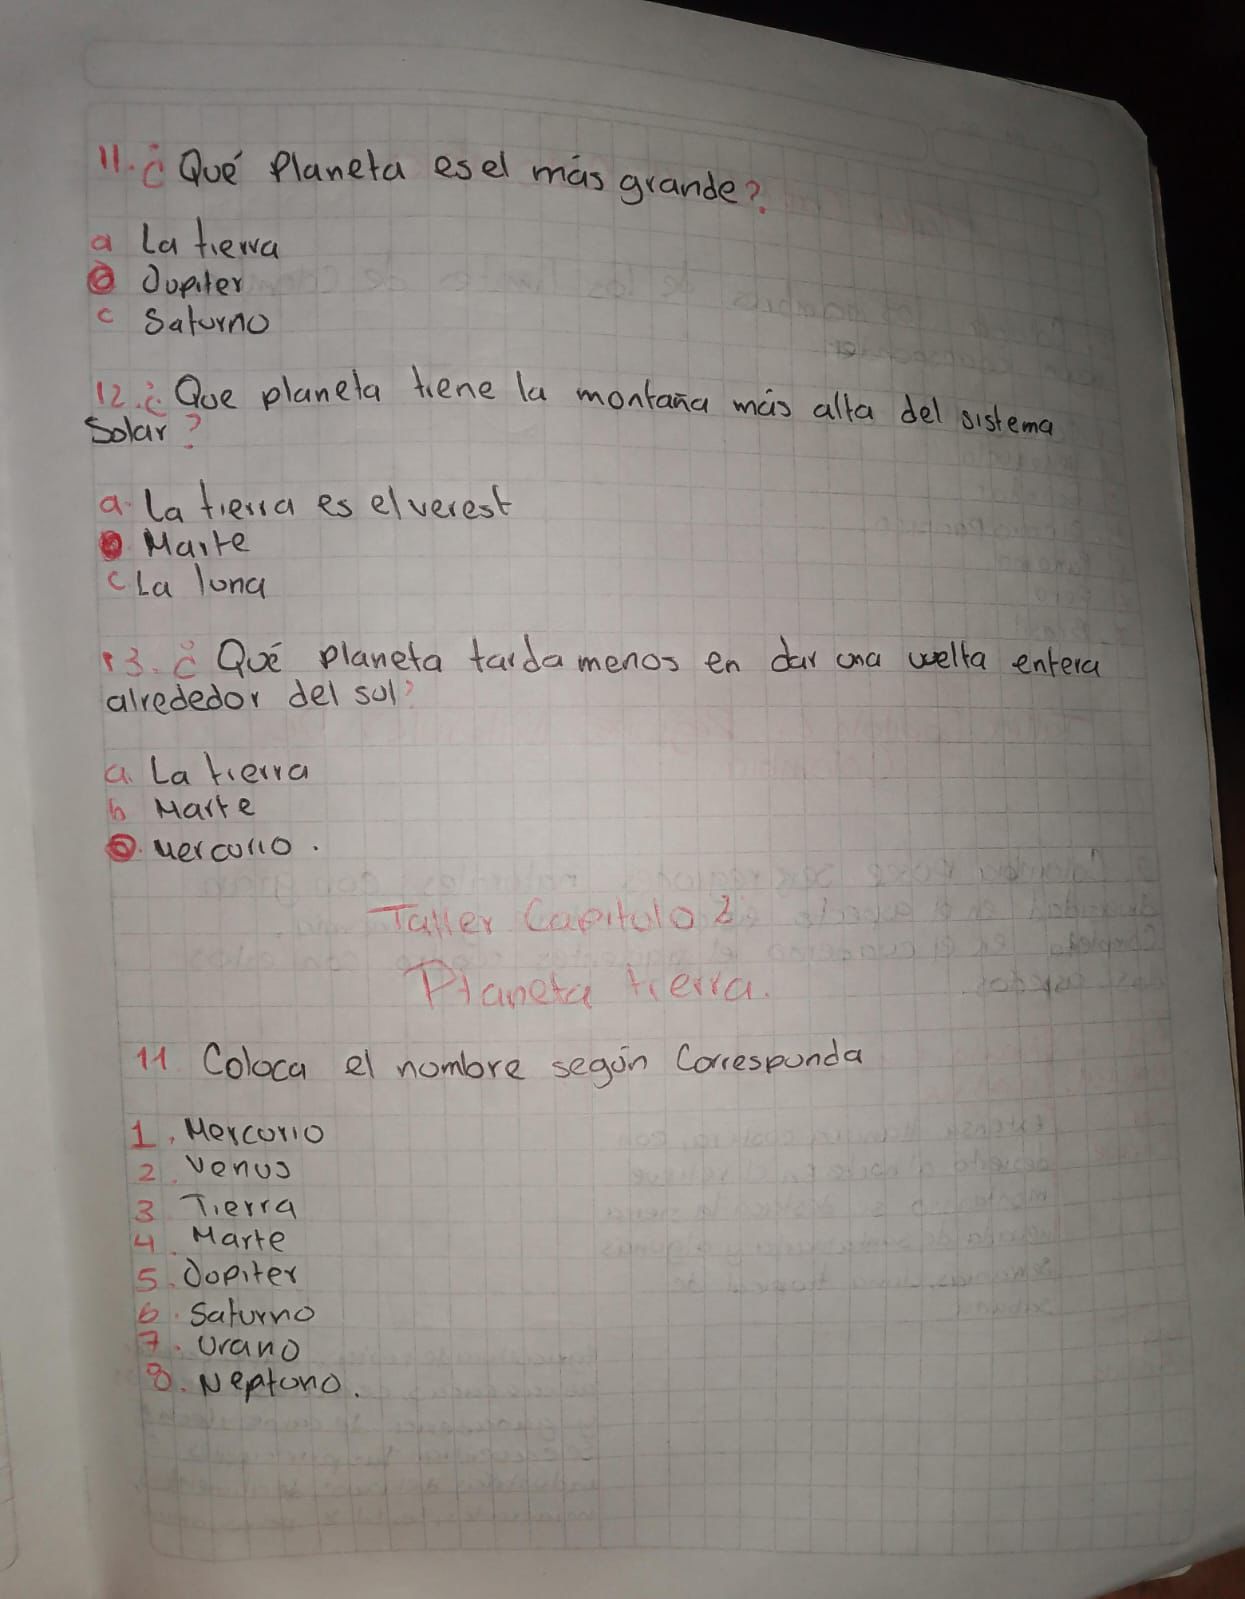 11. ¿Qué Planeta es el más grande?
a La tierra
Jupiter
c Saturno
12. ¿Que planeta tiene la montaña más alta del sistema
Solar?
a. La tierra es elverest
Marte
c La luna
13. ¿Qué planeta tarda menos en dar una vuelta entera
alrededor del sol?
a. La tierra
b Marte
mercurio.
Taller Capitulo 2
Planeta tierra.
11 Coloca el nombre según Corresponda
1. Mercurio
2. Venus
3 Tierra
4. Marte
5. Jopiter
6. Saturno
7. Urano
8. Neptuno.